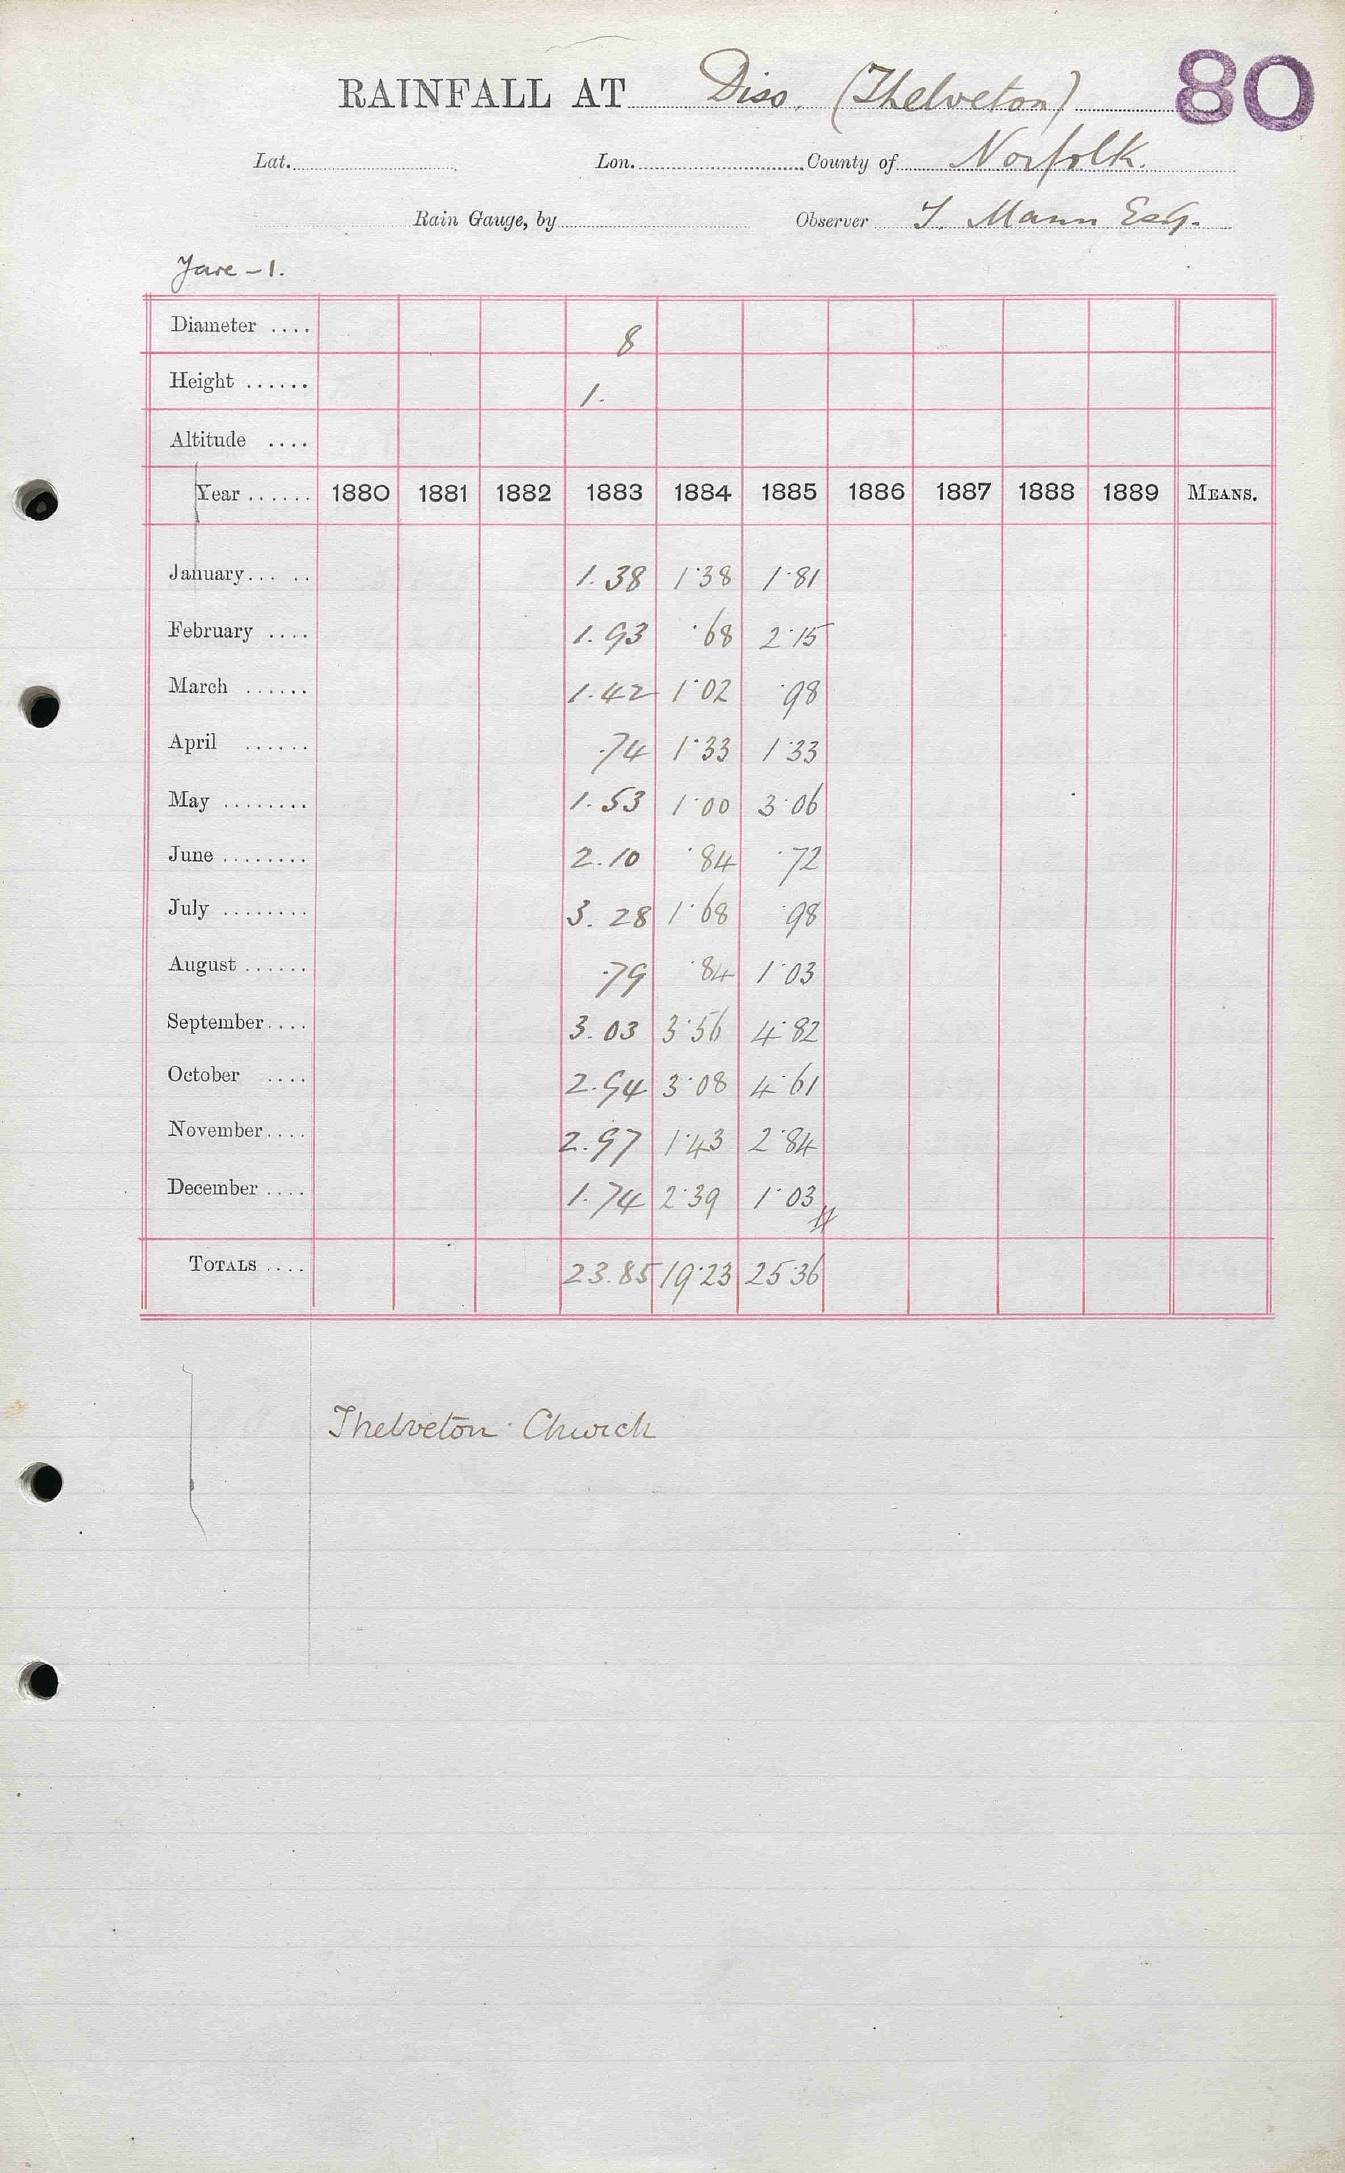 80
RAINFALL AT Diss. (Thelveton)
Lat. Lon. County of Norfolk.
Rain Gauge, by Observer T. Mann Esq.
Yare - 1.
Diameter .... 8
Height ...... 1.
Altitude ....
Year ...... 1880 1881 1882 1883 1884 1885 1886 1887 1888 1889 MEANS.
January... .. 1.38 1.38 1.81
February .... 1.93 .68 2.15
March ...... 1.42 1.02 .98
April ...... .74 1.33 1.33
May ........ 1.53 1.00 3.06
June ........ 2.10 .84 .72
July ........ 3.28 1.68 .98
August ...... .79 .84 1.03
September.... 3.03 3.56 4.82
October .... 2.94 3.08 4.61
November.... 2.97 1.43 2.84
December .... 1.74 2.39 1.03
TOTALS .... 23.85 19.23 25.36
Thelveton Church